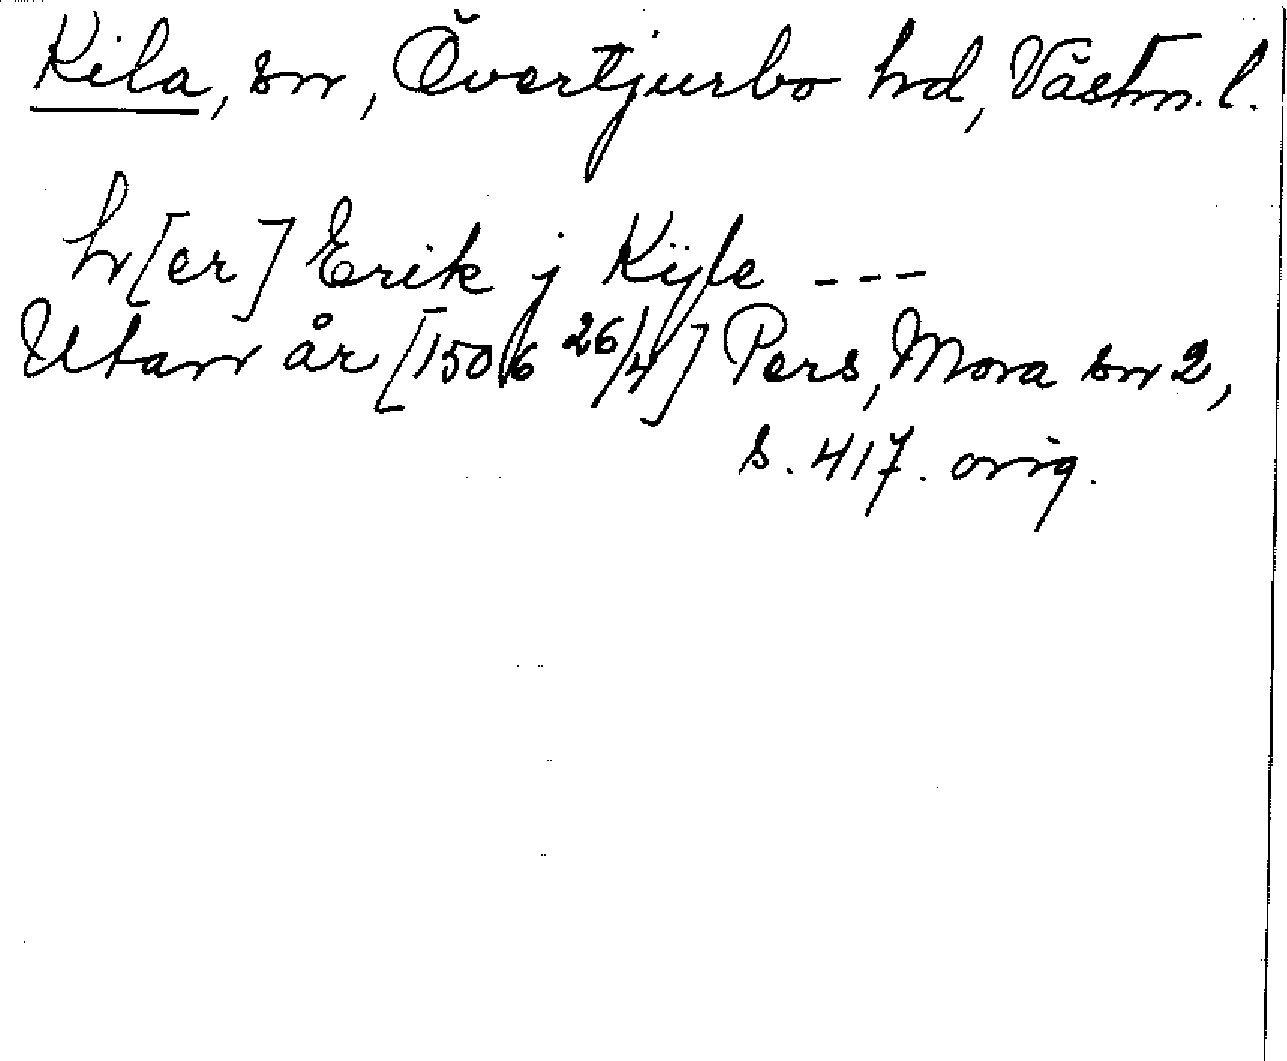 Kila, sn, Övertjurbo hd, Västm. l.
h[er] Erik j Kijle ---
Utan år [1506 26/4] Pers, Mora sn 2,
s. 417. orig.